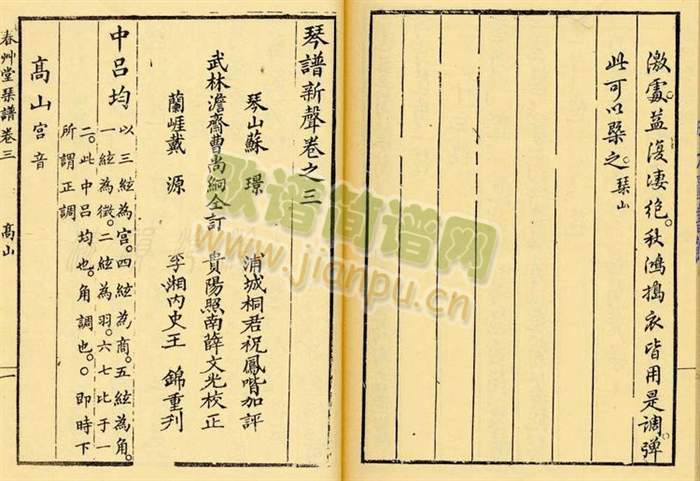 激處。益淒绝。秋鴻搗衣皆用是調彈
此可以槩之。琹山
琴譜新聲卷之三
琴山蘇 璟 浦城桐君祝鳳喈加評
武林澹齋曹尚絅仝訂 貴陽照南薛文光校正
蘭崖戴 源 孚湘内史王 錦重刋
中吕均 以三絃為宮。四絃為商。五絃為角。
一絃為徵。二絃為羽。六七比于一
二。此中吕均也。角調也。○即時下
所謂正調
髙山宮音
春艸堂琹譜卷三 髙山 一
歌谱简谱网
www.jianpu.cn